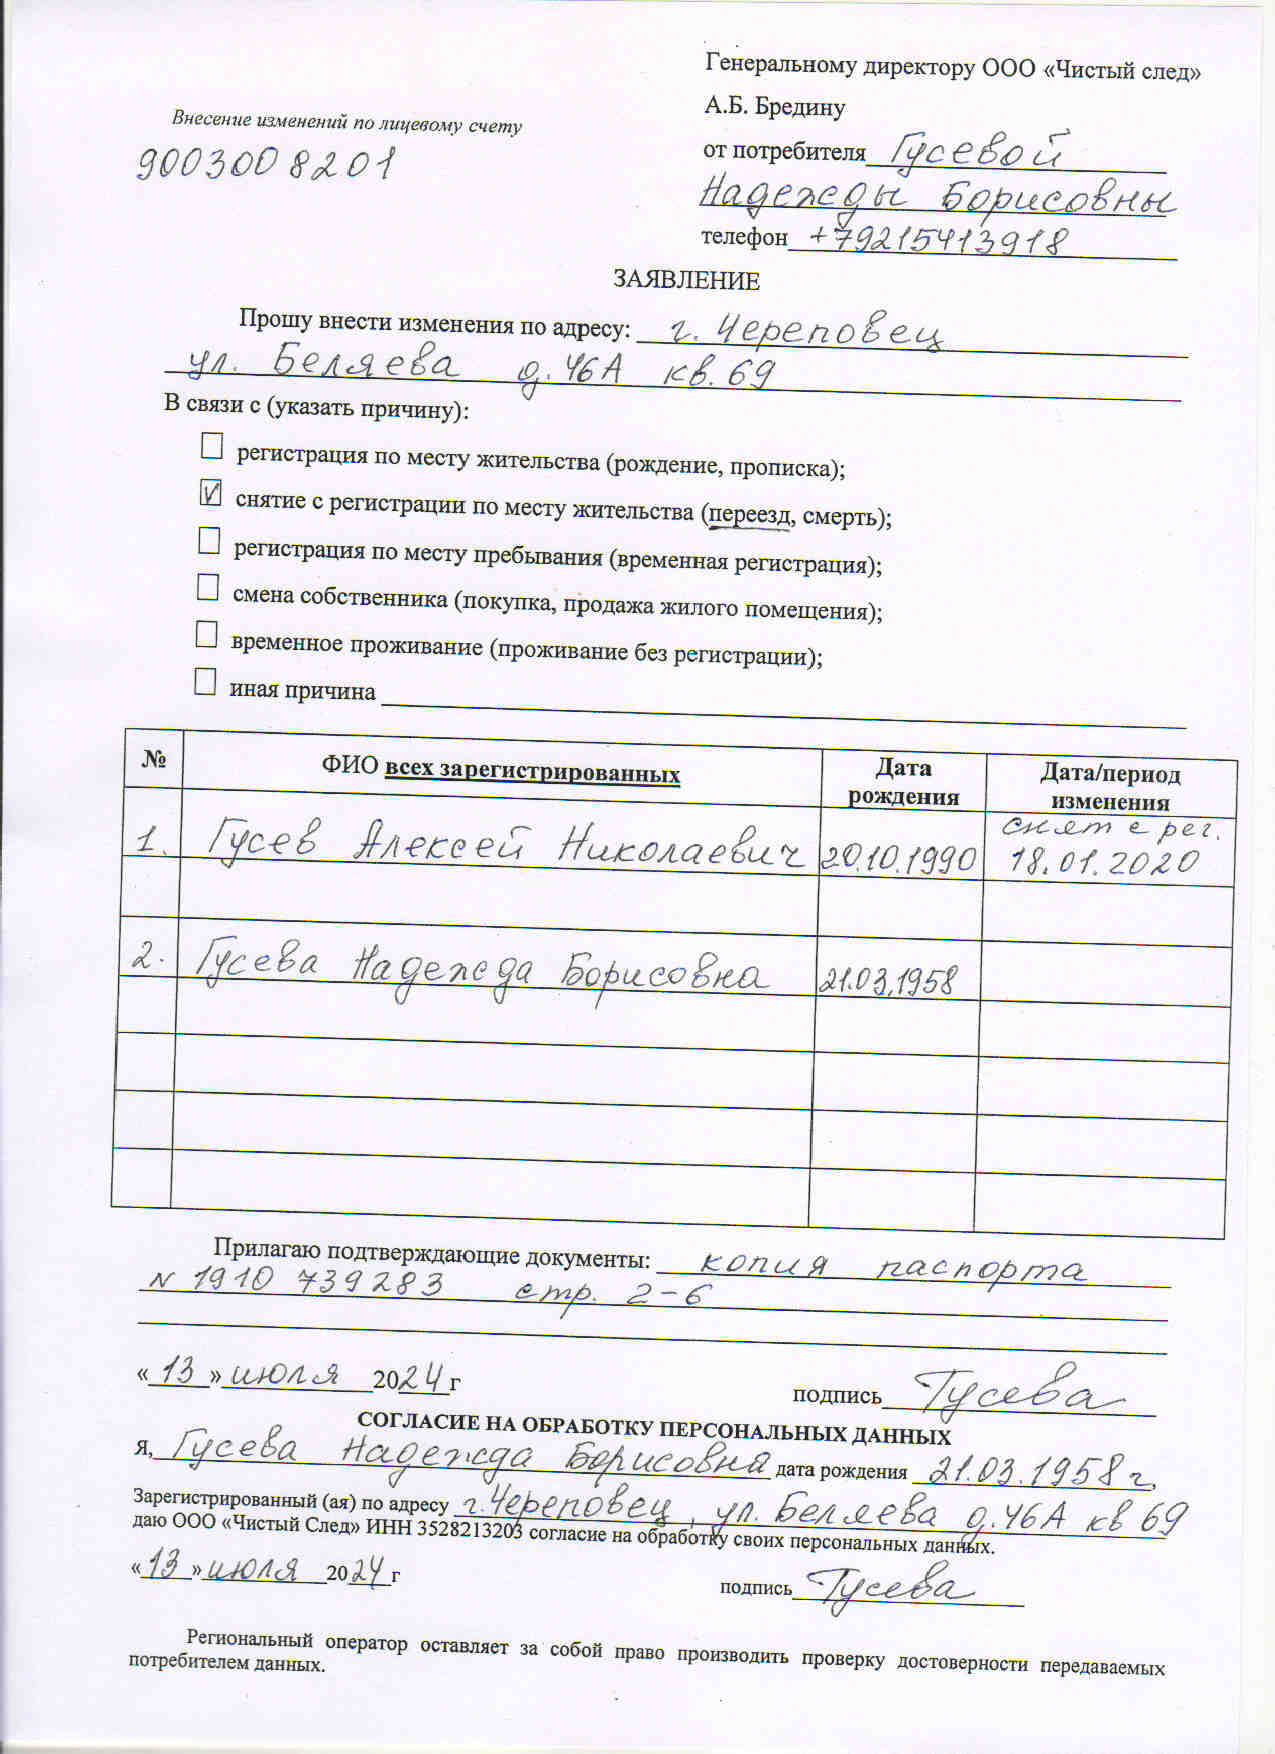 Генеральному директору ООО «Чистый след»
А.Б. Бредину
Внесение изменений по лицевому счету
9003008201
от потребителя Гусевой
Надежды Борисовны
телефон +79215413918
ЗАЯВЛЕНИЕ
Прошу внести изменения по адресу: г. Череповец
ул. Беляева д.46А кв.69
В связи с (указать причину):
регистрация по месту жительства (рождение, прописка);
V снятие с регистрации по месту жительства (переезд, смерть);
регистрация по месту пребывания (временная регистрация);
смена собственника (покупка, продажа жилого помещения);
временное проживание (проживание без регистрации);
иная причина
№ ФИО всех зарегистрированных Дата рождения Дата/период изменения
1. Гусев Алексей Николаевич 20.10.1990 снят с рег. 18.01.2020
2. Гусева Надежда Борисовна 21.03.1958
Прилагаю подтверждающие документы: копия паспорта
N 1910 739283 стр. 2-6
«13» июля 2024 г подпись Гусева
СОГЛАСИЕ НА ОБРАБОТКУ ПЕРСОНАЛЬНЫХ ДАННЫХ
Я, Гусева Надежда Борисовна дата рождения 21.03.1958 г,
Зарегистрированный (ая) по адресу г.Череповец, ул. Беляева д.46А кв 69
даю ООО «Чистый След» ИНН 3528213203 согласие на обработку своих персональных данных.
«13» июля 2024 г подпись Гусева
Региональный оператор оставляет за собой право производить проверку достоверности передаваемых
потребителем данных.